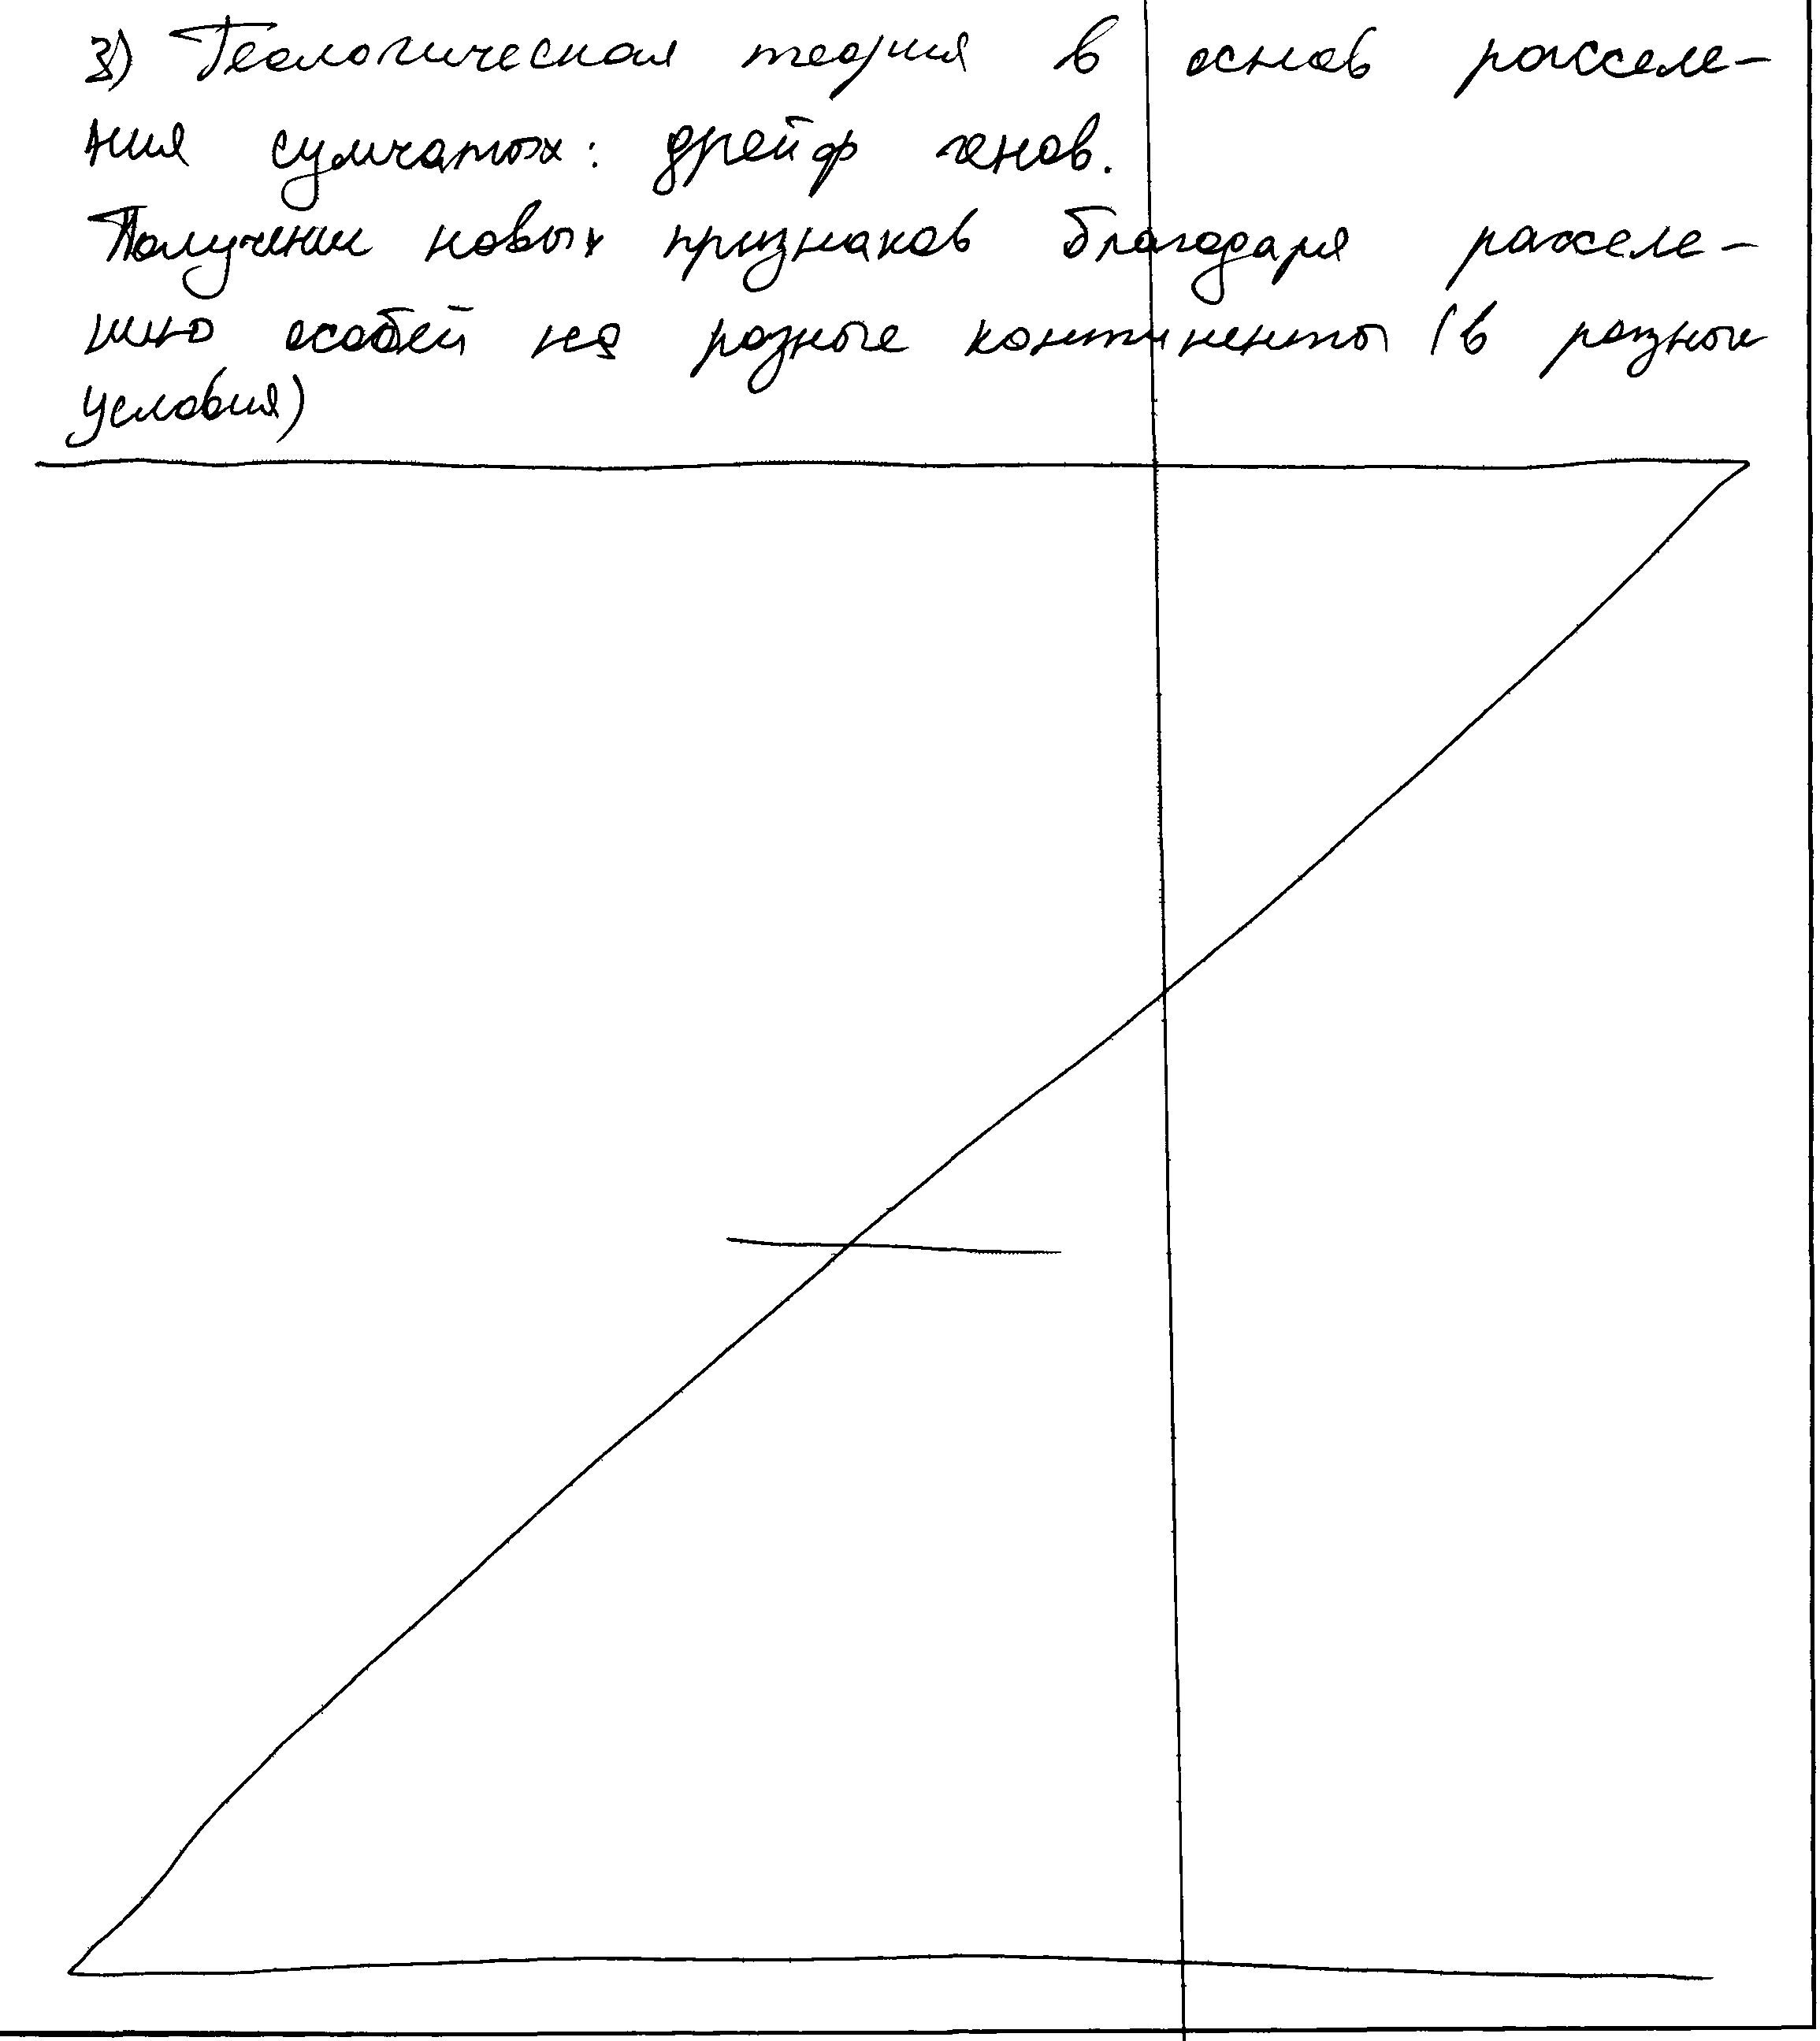 3) Геологическая теория в основ расселе-
ния сумчатых: дрейф генов.
Получении новых признаков благодаря расселе-
нию особей на разные континенты (в разные
условия)